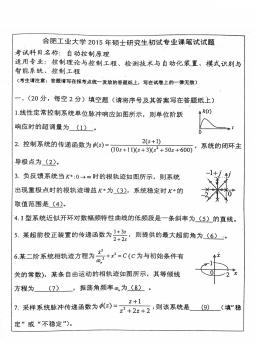 合肥工业大学 2015 年硕士研究生初试专业课笔试试题
考试科目名称：自动控制原理
适用专业：控制理论与控制工程、检测技术与自动化装置、模式识别与
智能系统、控制工程
（考生请注意：答题请写在报考点统一发放的答题纸上，写在试卷上的一律无效）
一、（20 分，每空 2 分）填空题（请将序号及其答案写在答题纸上）
1.线性定常控制系统单位脉冲响应如图所示，则单位阶跃
k(t)
响应时的超调量为 （1） 。
2. 控制系统的传递函数为 ϕ(s)= 2(s+1) / (10s+11)(s+5)(s²+50s+600) ，系统的闭环主
导极点为（2）。
3. 负反馈系统当 K*:0→∞ 时的根轨迹如图所示，则系统
出现重根点时的根轨迹增益 K* 为（3），系统稳定时 K* 的
取值范围是（4）。
4. I 型系统近似开环对数幅频特性曲线的低频段是一条斜率为（5）的直线。
5. 某超前校正装置的传递函数为 1+3s / 2+2s ，则提供的最大超前角为（6）。
6.某二阶系统相轨迹方程为 + x² = C（C 为与初始条件有
关的常数），某条自由运动的相轨迹如图所示，其等倾线
方程为 （7） ，振荡频率 为（8）。
7. 采样系统脉冲传递函数为 ϕ(z)= z+1 / z²+2z+2 ，则该系统是 （9） （填“稳
定”或“不稳定”）。